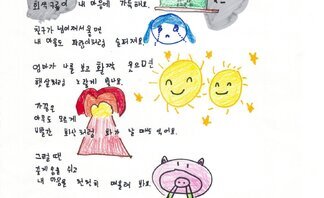 회색구름이 내 마음에 가득해요.
친구가 넘어져서 울면
내 마음도 파랑이처럼 슬퍼져요.
엄마가 나를 보고 활짝 웃으면
햇살처럼 노랗게 빛나요.
가끔은
아무도 모르게
빨간 화산처럼 화가 날 때도 있어요.
그럴 때면
깊게 숨을 쉬고
내 마음을 천천히 바라봐요.